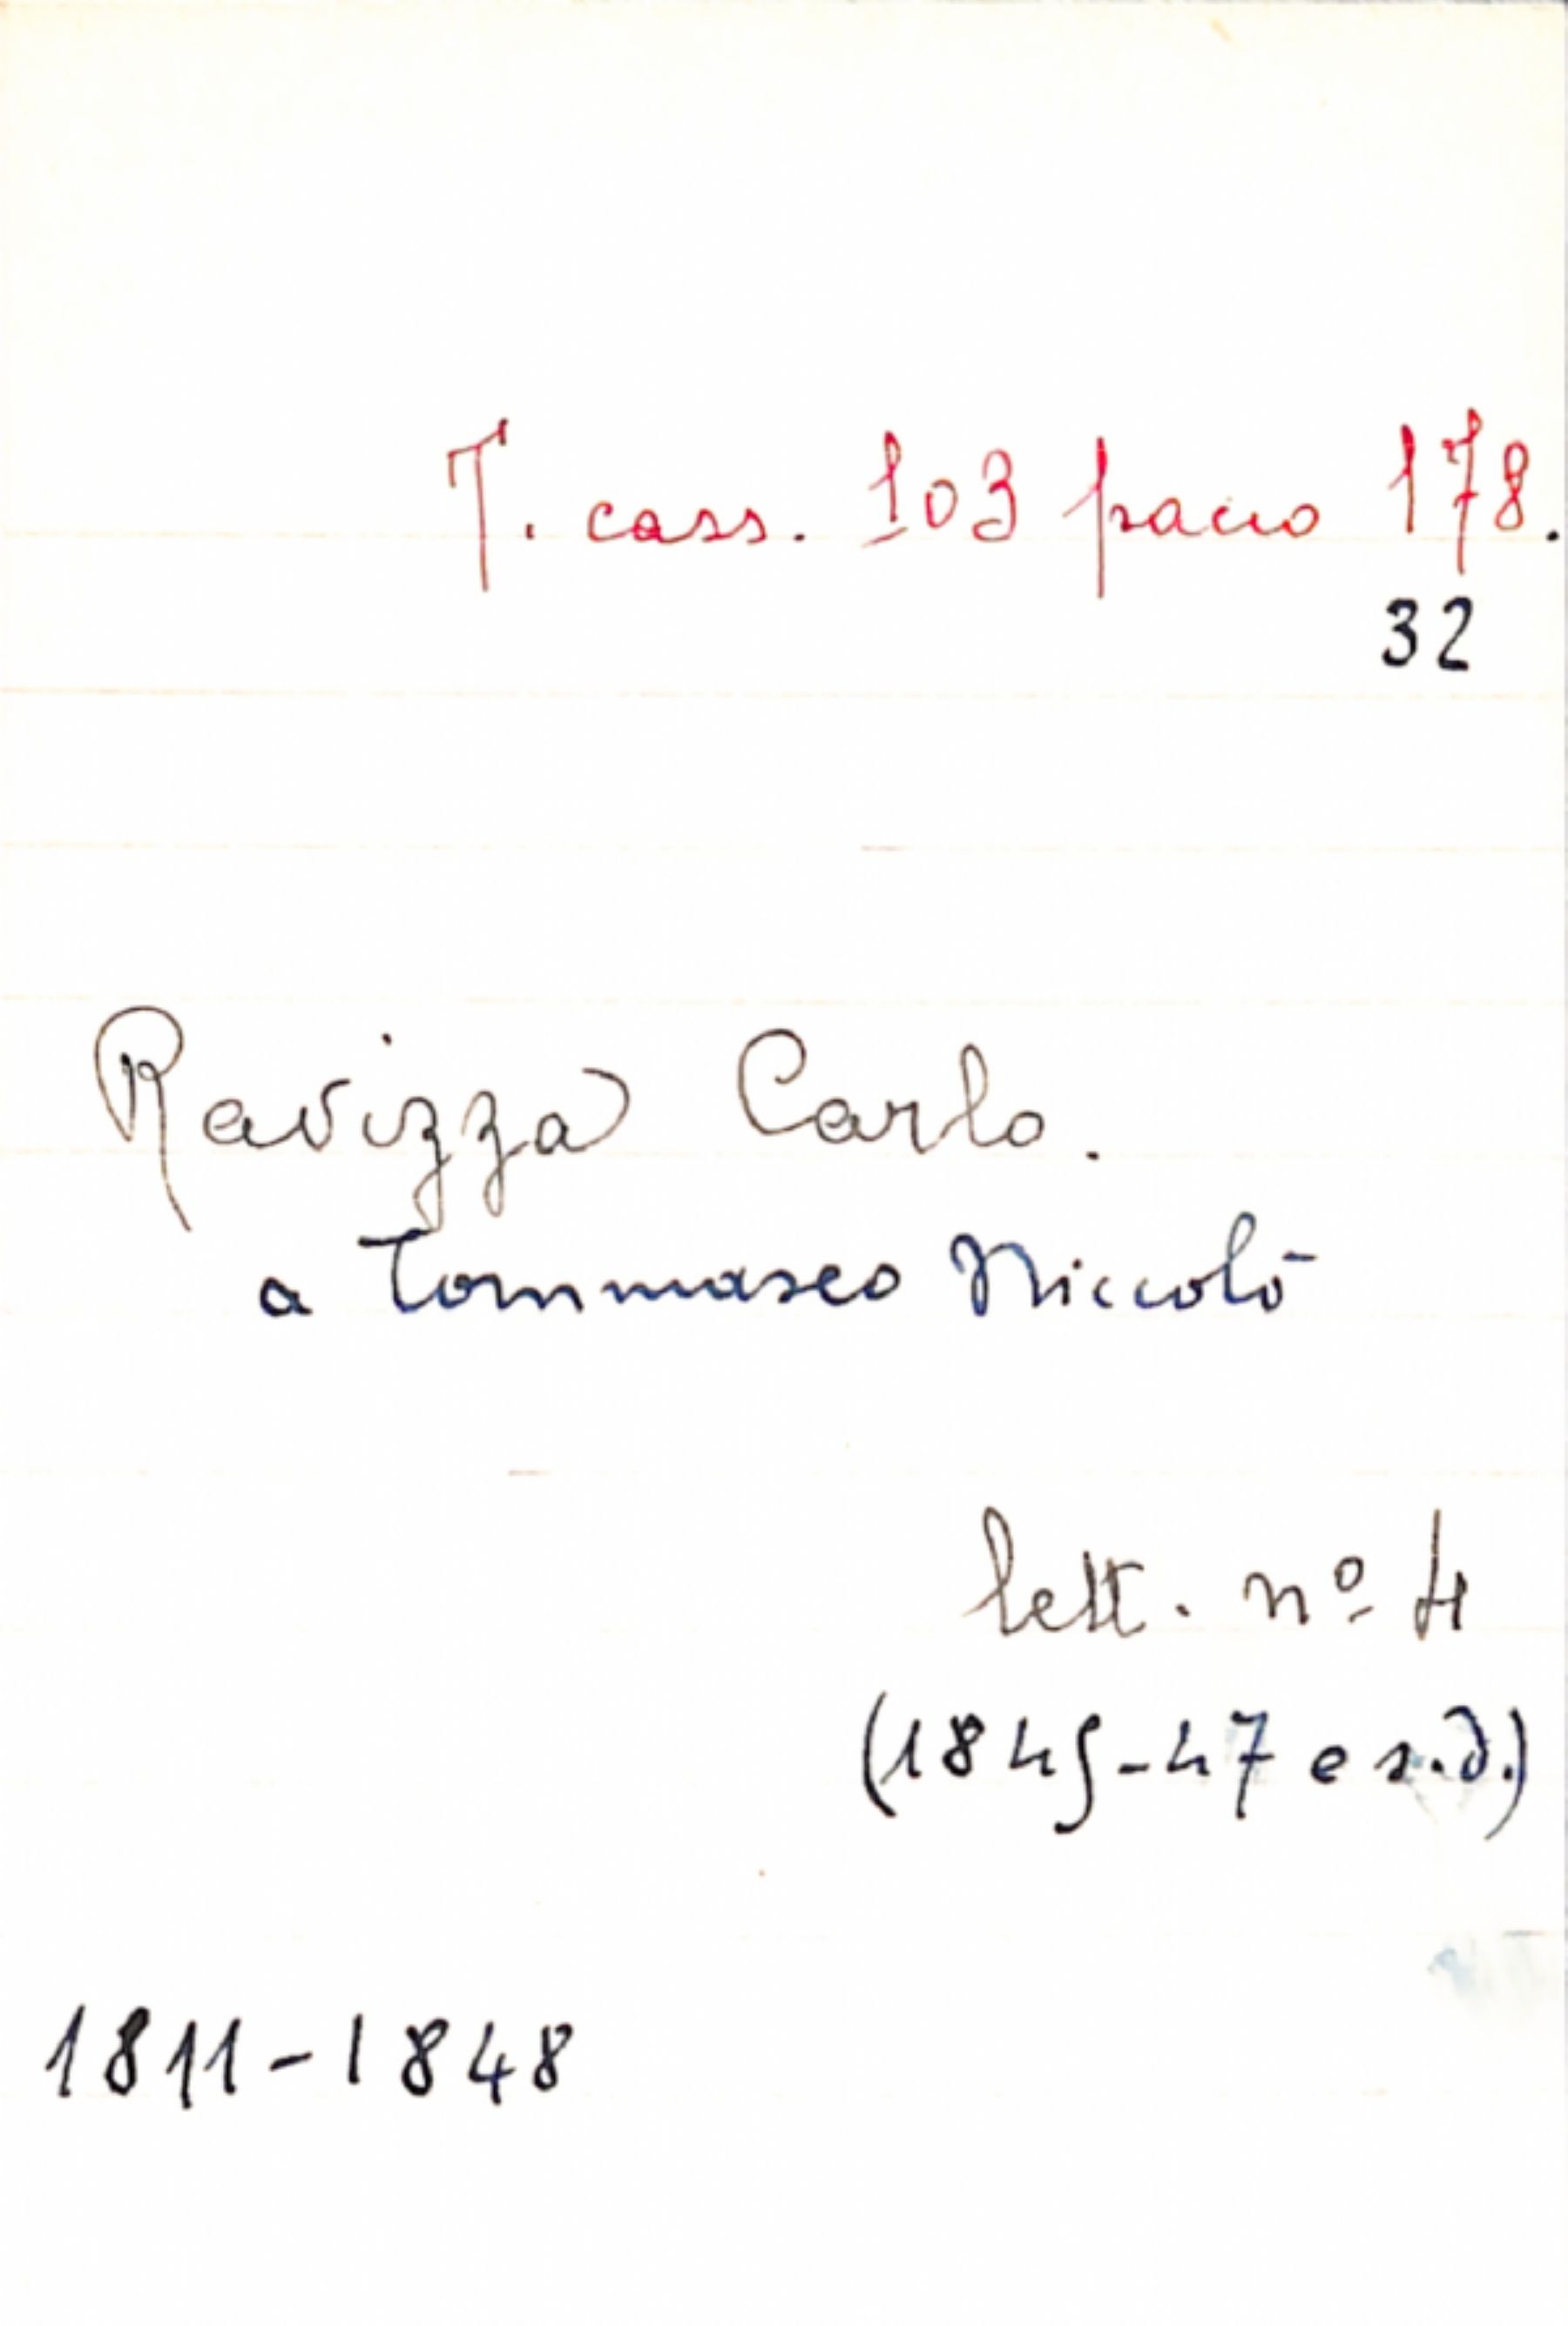 T. cass. 103 pacco 178.
32
Ravizza Carlo.
a Tommaseo Niccolò
lett. nº 4
(1845-47 e s.d.)
1811-1848